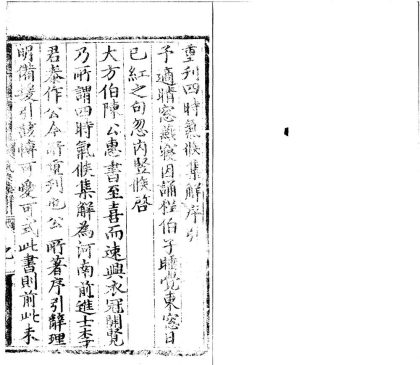 重刊四時氣候集解序引
予適晴窓燕寝因誦程伯子睡覺東窓日
已紅之句忽內竪候啓
大方伯陳公惠書至喜而速興衣冠開覽
乃所謂四時氣候集解為河南前進士李
君泰作公令賢重刊也公所著序引辭理
明備援引該博可愛可式此書則前此未